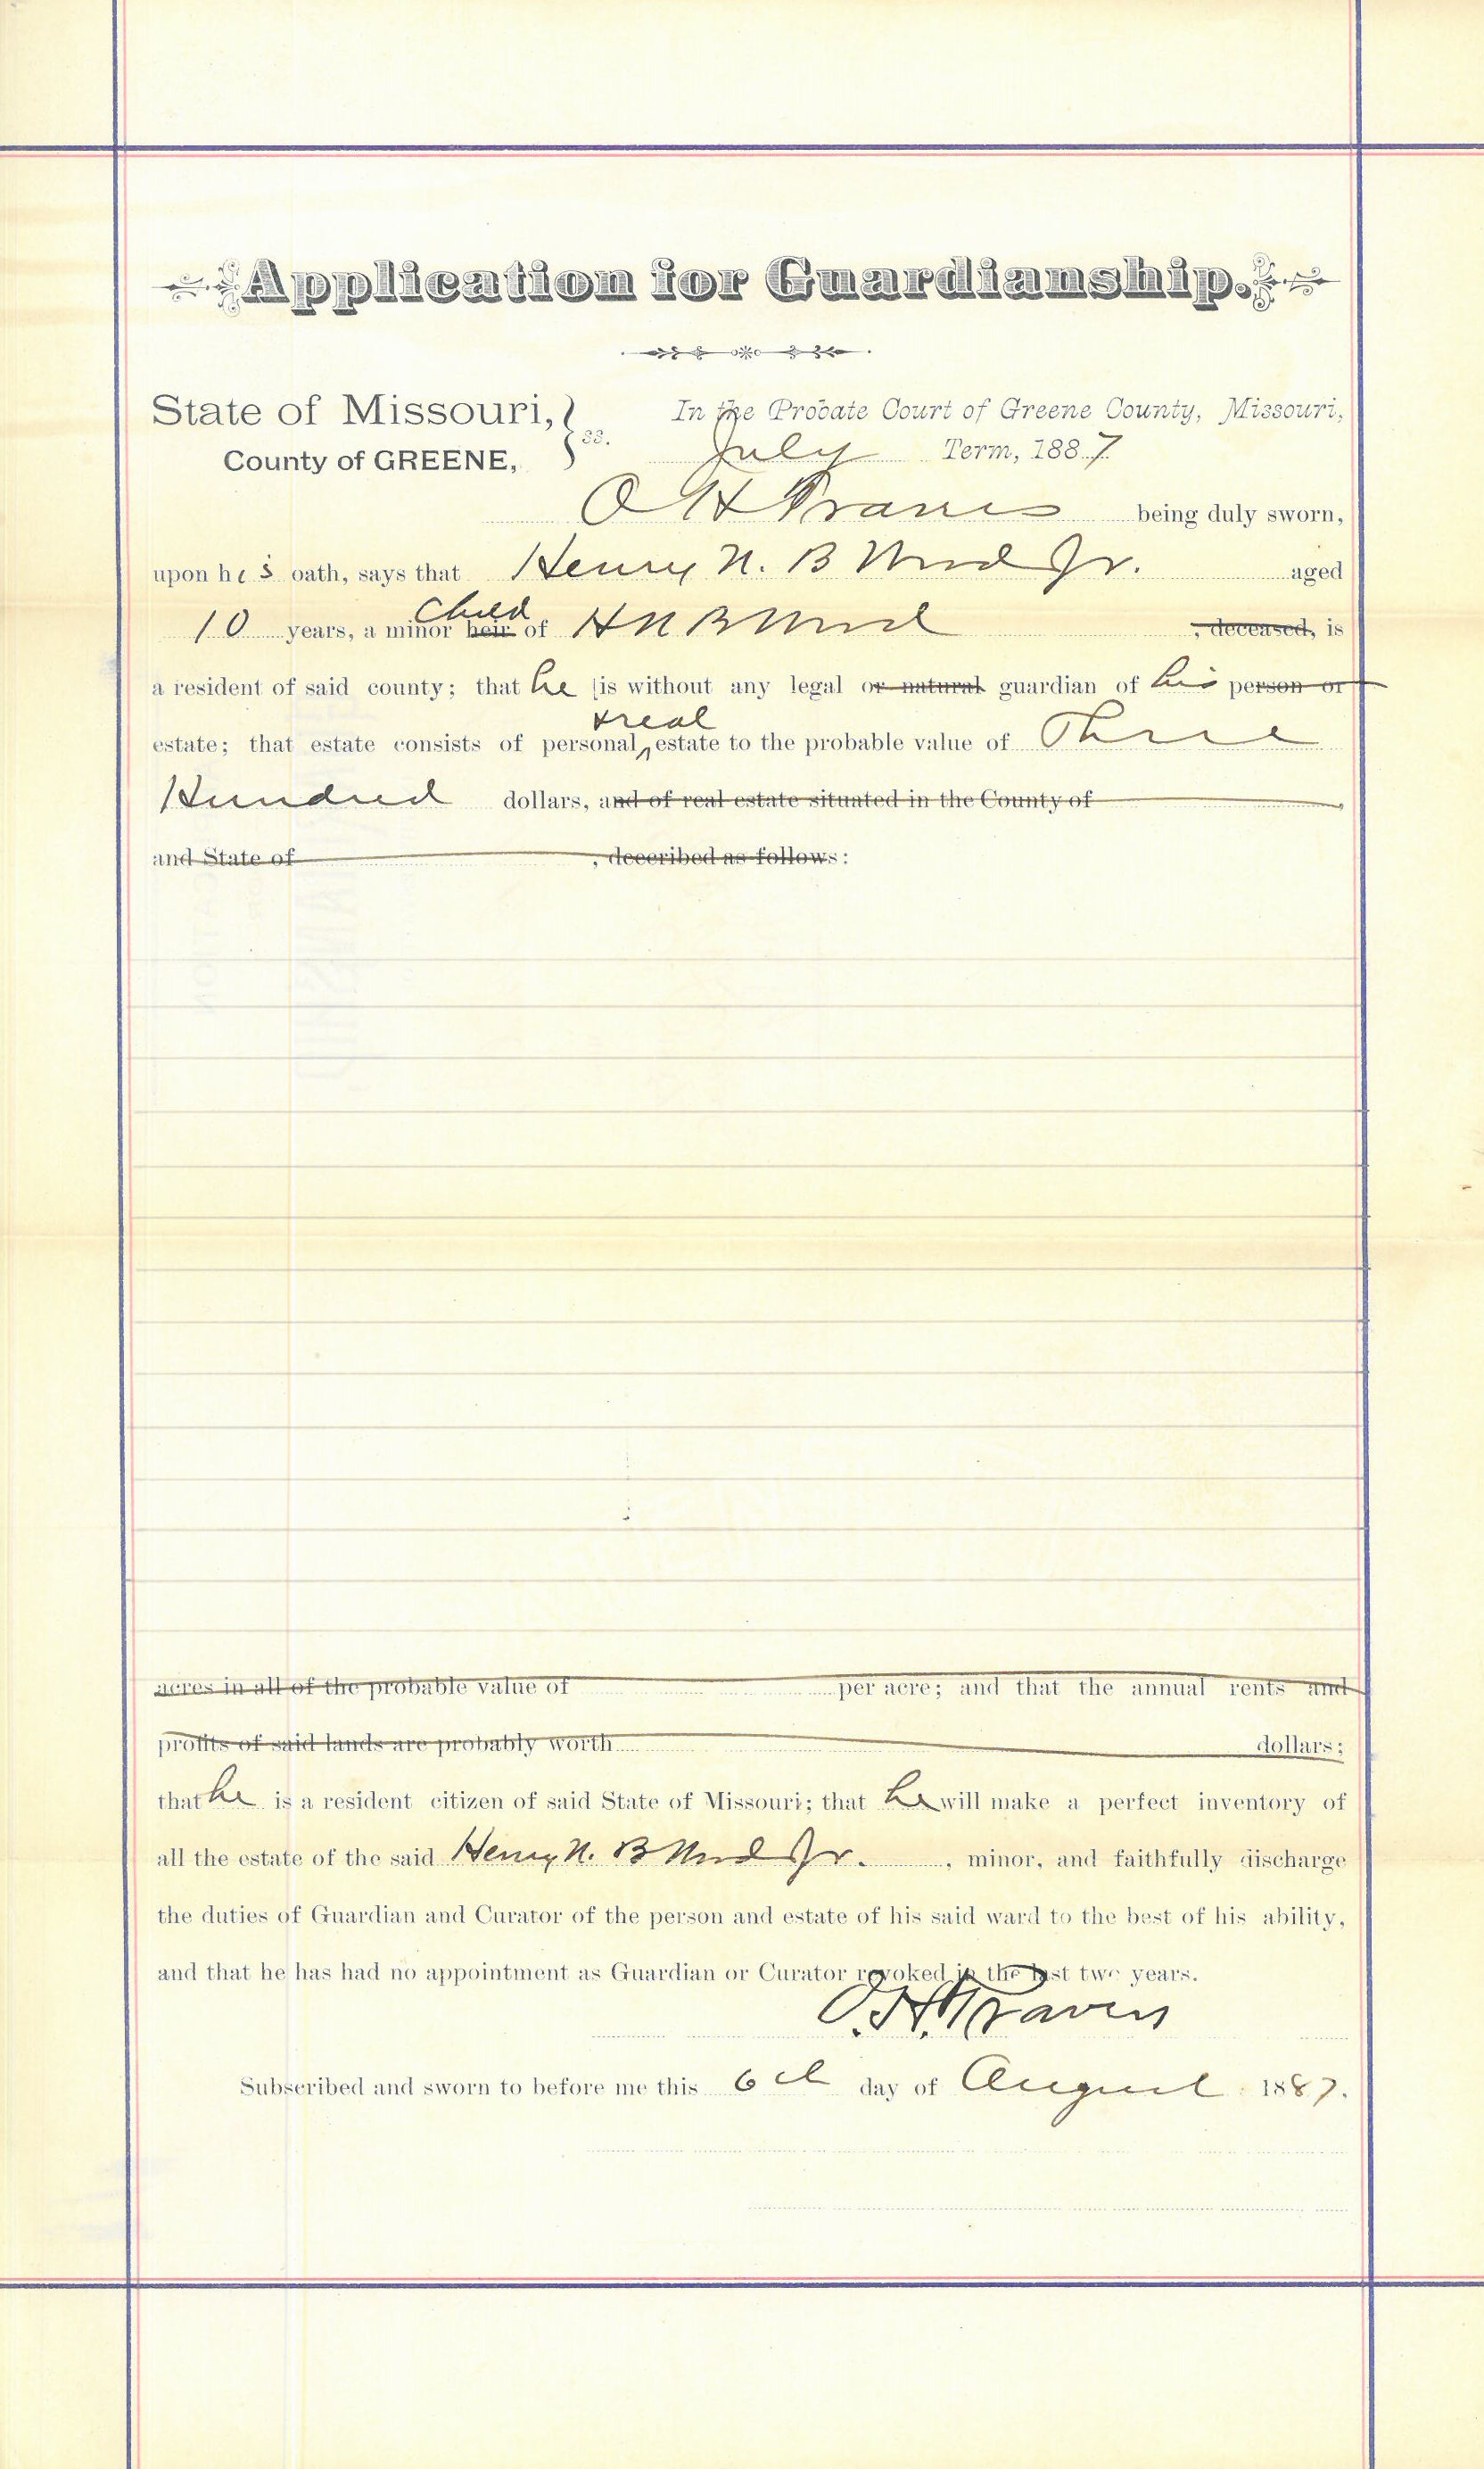 Application for Guardianship.
State of Missouri, } ss. In the Probate Court of Greene County, Missouri,
County of GREENE, July Term, 1887
O H Travis being duly sworn,
upon his oath, says that Henry N. B Jr. aged
10 years, a minor heir Child of H N B , deceased, is
a resident of said county; that he is without any legal or natural guardian of his person or
estate; that estate consists of personal, & real estate to the probable value of Three
Hundred dollars, and of real estate situated in the County of
and State of , deceribed as follows:
acres in all of the probable value of per acre; and that the annual rents and
profits of said lands are probably worth dollars;
that he is a resident citizen of said State of Missouri; that he will make a perfect inventory of
all the estate of the said Henry N. B Jr. , minor, and faithfully discharge
the duties of Guardian and Curator of the person and estate of his said ward to the best of his ability,
and that he has had no appointment as Guardian or Curator revoked in the last two years.
O. H. Travis
Subscribed and sworn to before me this 6th day of August 1887.